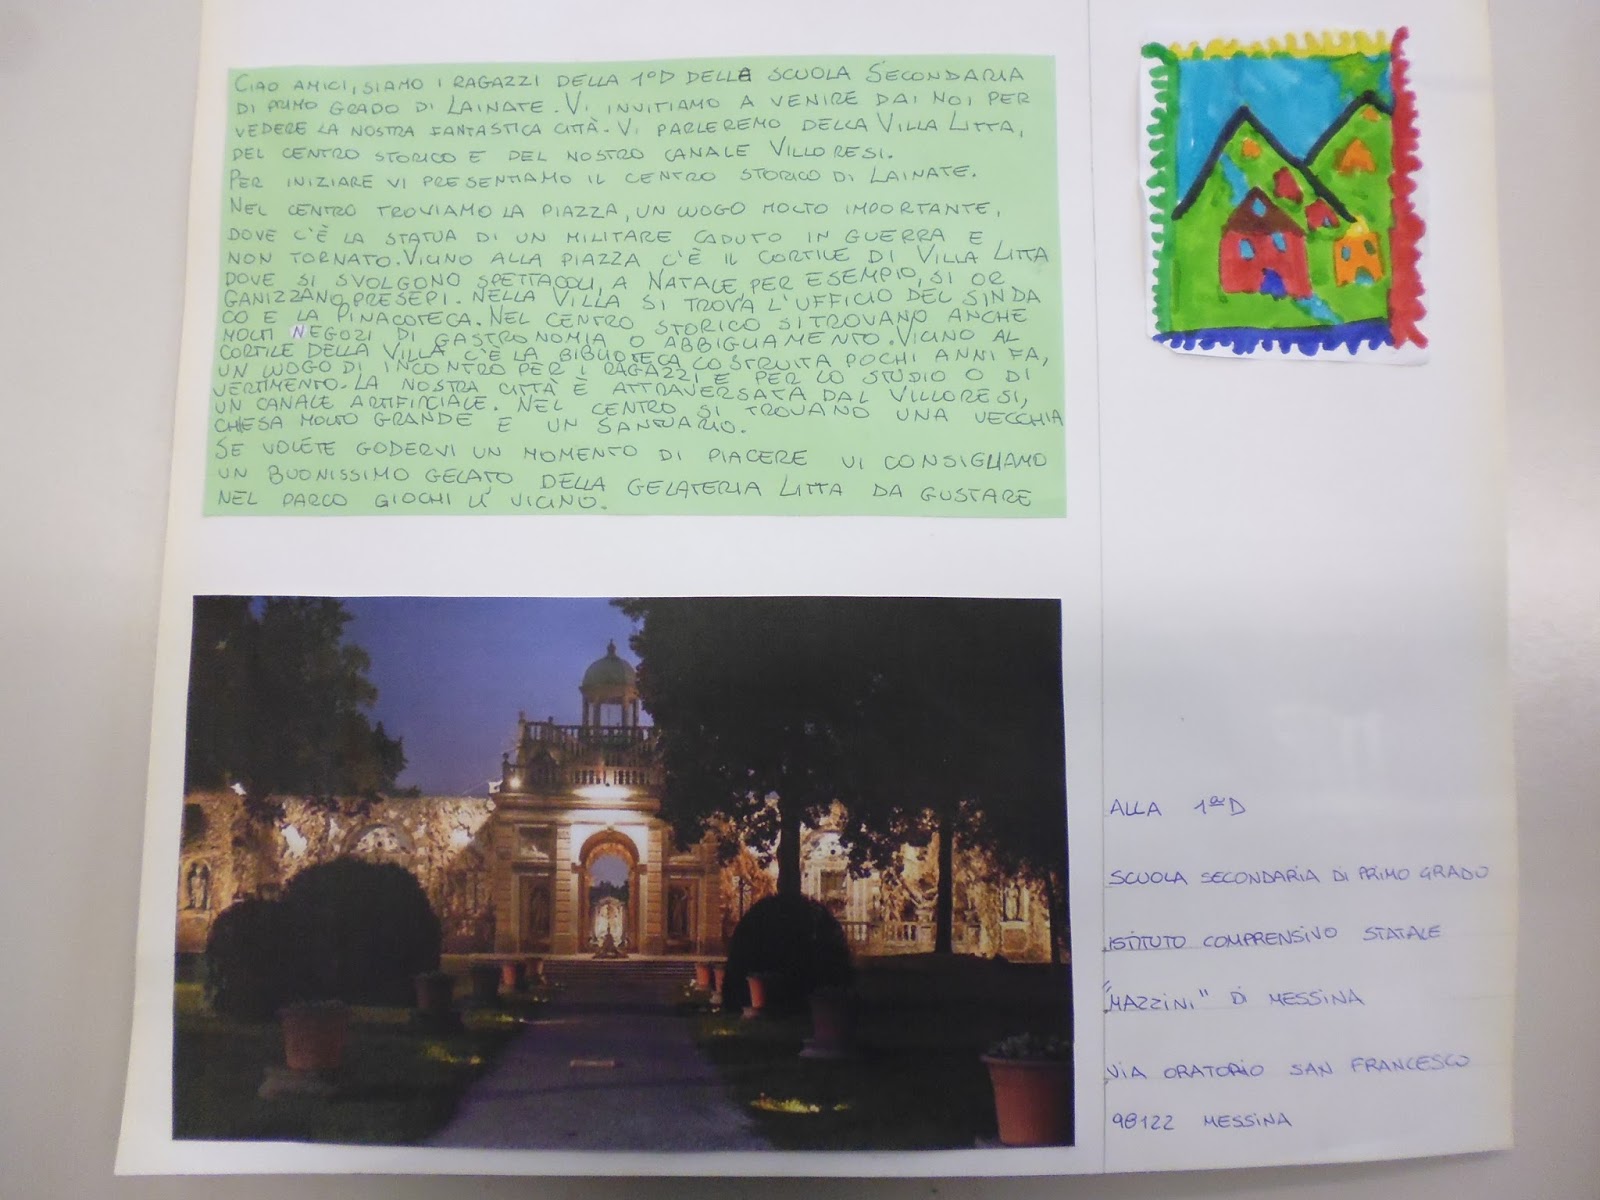 CIAO AMICI, SIAMO I RAGAZZI DELLA 1°D DELLA SCUOLA SECONDARIA
DI PRIMO GRADO DI LAINATE. VI INVITIAMO A VENIRE DAI NOI PER
VEDERE LA NOSTRA FANTASTICA CITTÀ. VI PARLEREMO DELLA VILLA LITTA,
DEL CENTRO STORICO E DEL NOSTRO CANALE VILLORESI.
PER INIZIARE VI PRESENTIAMO IL CENTRO STORICO DI LAINATE.
NEL CENTRO TROVIAMO LA PIAZZA, UN LUOGO MOLTO IMPORTANTE,
DOVE C'È LA STATUA DI UN MILITARE CADUTO IN GUERRA E
NON TORNATO. VICINO ALLA PIAZZA C'È IL CORTILE DI VILLA LITTA
DOVE SI SVOLGONO SPETTACOLI, A NATALE, PER ESEMPIO, SI OR
GANIZZANO PRESEPI. NELLA VILLA SI TROVA L'UFFICIO DEL SINDA
CO E LA PINACOTECA. NEL CENTRO STORICO SI TROVANO ANCHE
MOLTI NEGOZI DI GASTRONOMIA O ABBIGLIAMENTO. VICINO AL
CORTILE DELLA VILLA C'È LA BIBLIOTECA COSTRUITA POCHI ANNI FA,
UN LUOGO DI INCONTRO PER I RAGAZZI E PER LO STUDIO O DI
VERTIMENTO. LA NOSTRA CITTÀ È ATTRAVERSATA DAL VILLORESI,
UN CANALE ARTIFICIALE. NEL CENTRO SI TROVANO UNA VECCHIA
CHIESA MOLTO GRANDE E UN SANTUARIO.
SE VOLETE GODERVI UN MOMENTO DI PIACERE VI CONSIGLIAMO
UN BUONISSIMO GELATO DELLA GELATERIA LITTA DA GUSTARE
NEL PARCO GIOCHI LÌ VICINO.
ALLA 1ªD
SCUOLA SECONDARIA DI PRIMO GRADO
ISTITUTO COMPRENSIVO STATALE
"MAZZINI" DI MESSINA
VIA ORATORIO SAN FRANCESCO
98122 MESSINA